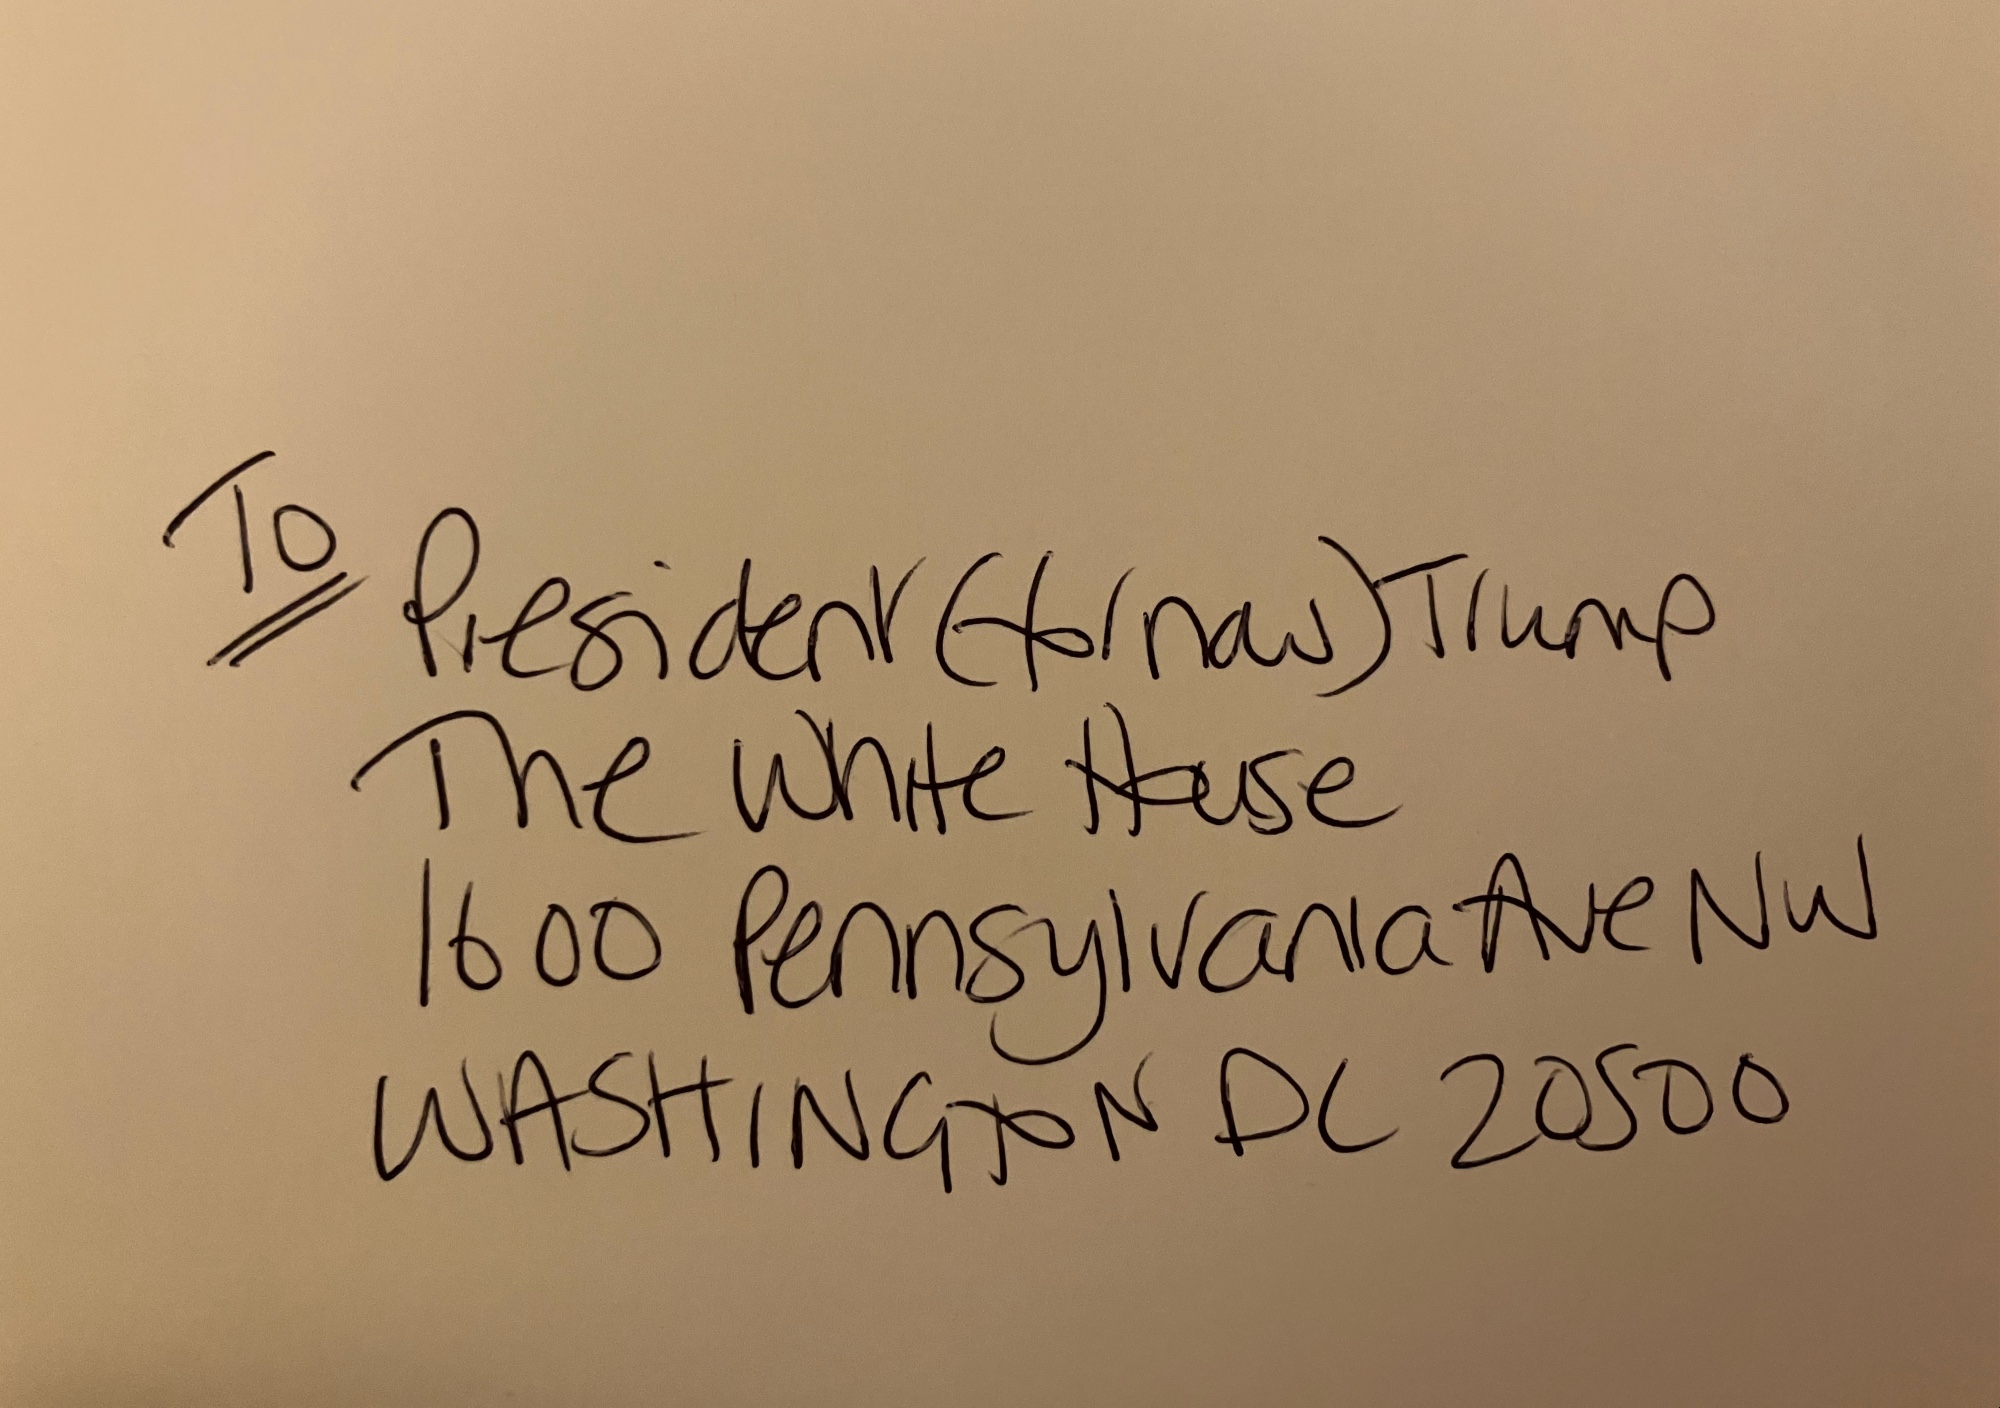 To
President (for now) Trump
The White House
1600 Pennsylvania Ave NW
WASHINGTON DC 20500